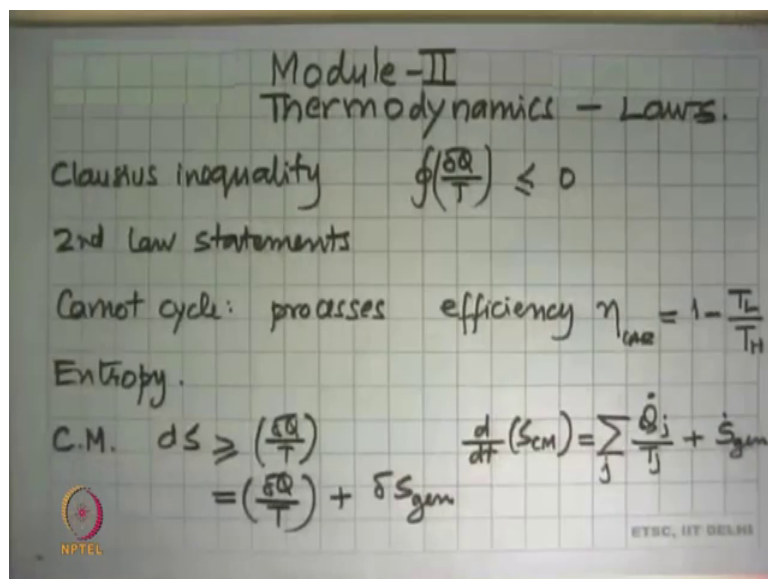 Module-II
Thermodynamics - Laws.
Clausius inequality ∮(δQ/T) ≤ 0
2nd Law statements
Carnot cycle: processes efficiency η_CAR = 1 - T_L/T_H
Entropy.
C.M. dS ≥ (δQ/T) d/dt (S_CM) = Σ_j Q̇_j/T_j + Ṡ_gen
= (δQ/T) + δS_gen
ETSC, IIT DELHI
NPTEL